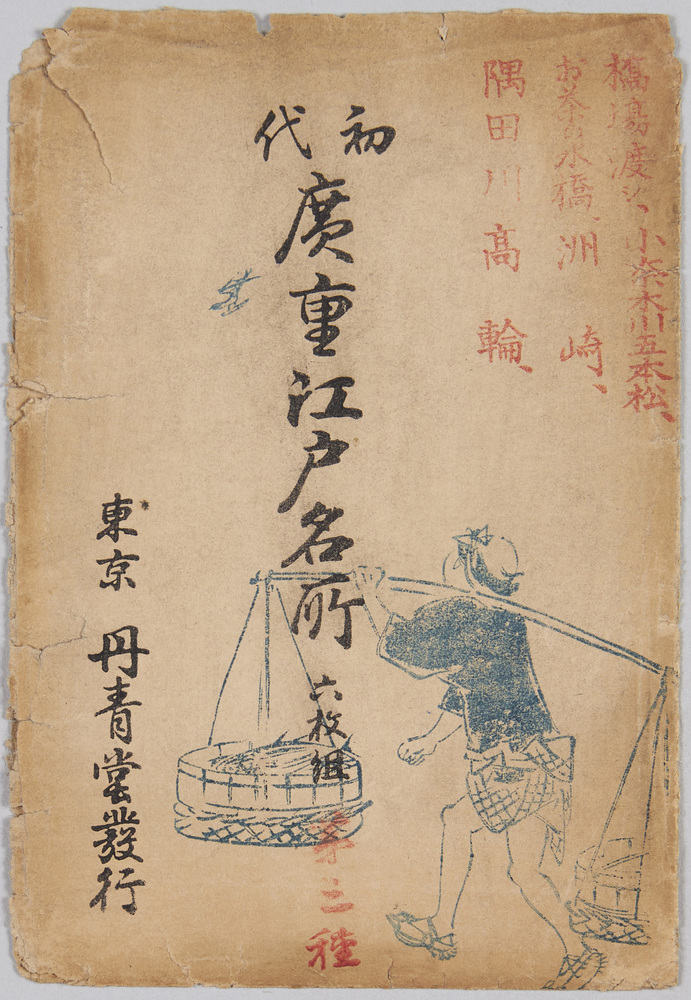 橋場渡し、小奈木川五本松、
お茶の水橋、洲崎、
隅田川高輪、
初代
廣重江戸名所
六枚組
第三種
東京 丹青堂發行